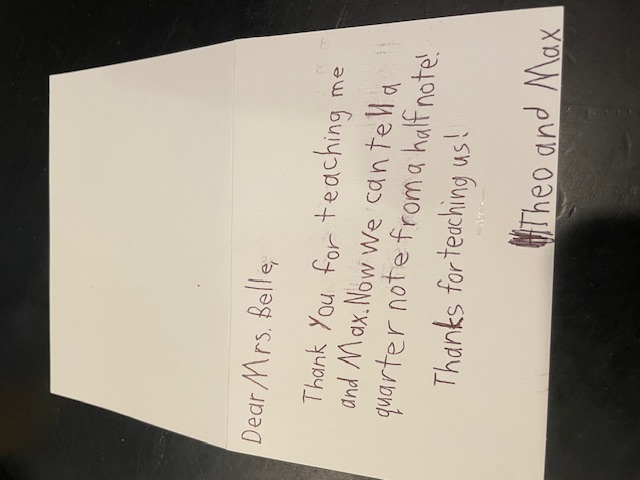 Dear Mrs. Belle,
Thank You for teaching me
and Max. Now We can tell a
quarter note from a half note!
Thanks for teaching us!
Theo and Max